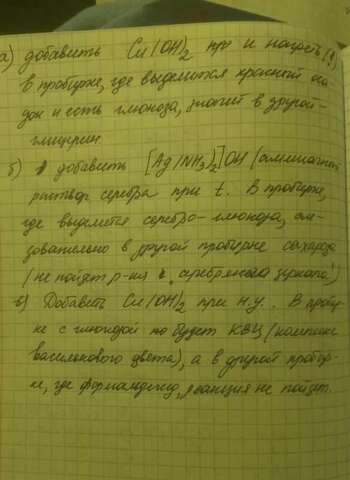 а) добавить Cu(OH)2 при и нагрев(?)
в пробирке, где выделится красный оса-
док и есть глюкоза, значит в другой-
глицерин
б) добавить [Ag(NH3)2]OH (аммиачный
раствор серебра при t. В пробирке,
где выделется серебро-глюкоза, сле-
зовательно в другой пробирке сахароза
(не пойдет р-ия серебряного зеркала)
в) Добавить Cu(OH)2 при н.у.. В проби-
ке с глюкозой то будет КВЦ (комплекс
василькового цвета), а в другой пробир-
ке, где формальдегид, реакция не пойдет.